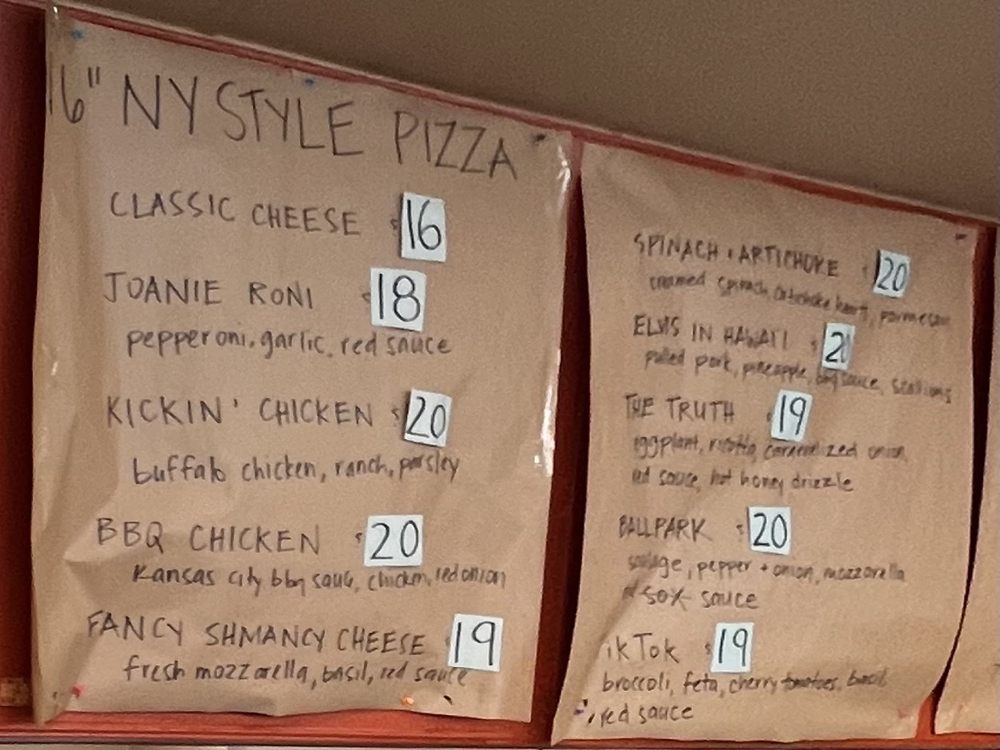 16" NY STYLE PIZZA
CLASSIC CHEESE $16
JOANIE RONI $18
pepperoni, garlic, red sauce
KICKIN' CHICKEN $20
buffalo chicken, ranch, parsley
BBQ CHICKEN $20
Kansas city bbq sauce, chicken, red onion
FANCY SHMANCY CHEESE 19
fresh mozzarella, basil, red sauce
SPINACH + ARTICHOKE $20
creamed spinach, artichoke hearts, parmesan
ELVIS IN HAWAII $20
pulled pork, pineapple, bbq sauce, scallions
THE TRUTH $19
eggplant, ricotta, caramelized onion,
red sauce, hot honey drizzle
BALLPARK $20
sausage, pepper + onion, mozzarella
sauce
ikTok $19
broccoli, feta, cherry tomatoes, basil
red sauce